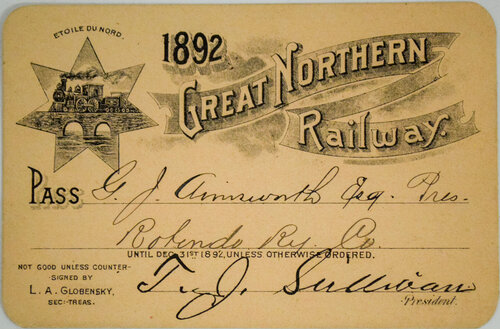 ETOILE DU NORD.
1892
GREAT NORTHERN
Railway.
PASS G. J. Ainsworth Esq. Pres.
Ry. Co.
UNTIL DEC. 31ST 1892, UNLESS OTHERWISE ORDERED.
NOT GOOD UNLESS COUNTER-
SIGNED BY
L. A. GLOBENSKY,
SEC:-TREAS.
T. J. Sullivan
President.